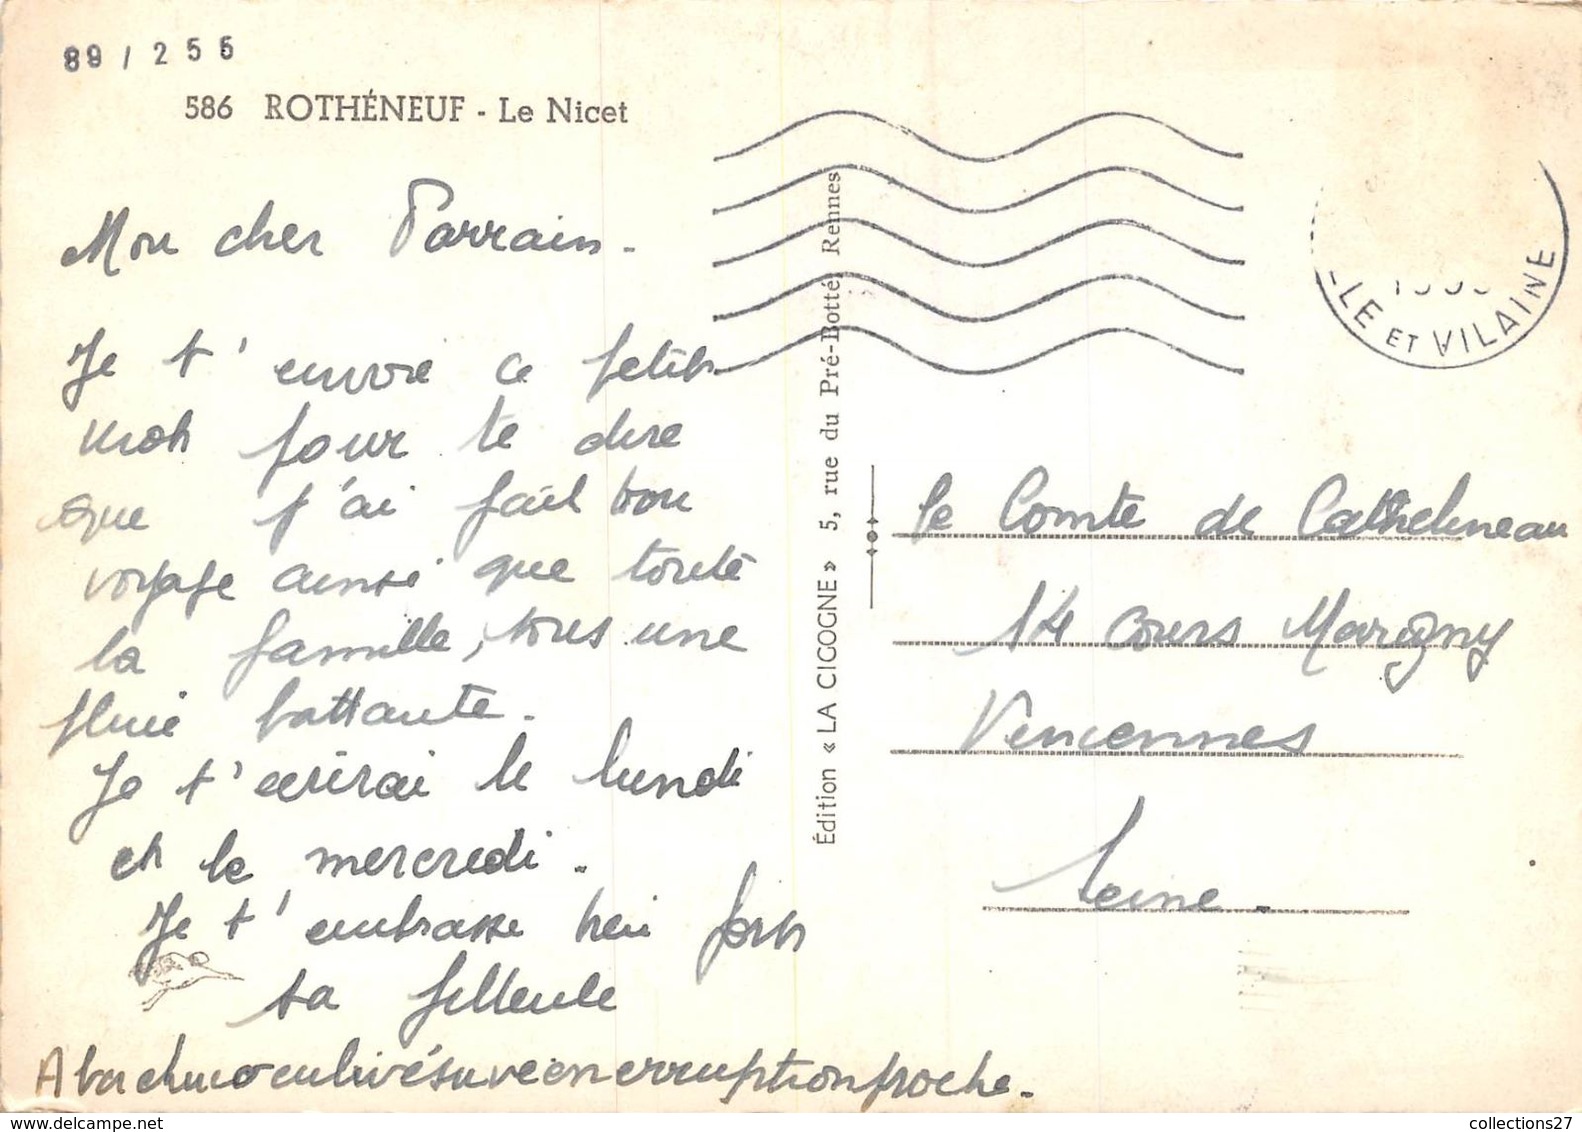 89 / 256
586 ROTHÉNEUF - Le Nicet
Mon cher Parrain.
Je t'envoie ce petit
mot pour te dire
que j'ai fait bon
voyage ainsi que toute
la famille, sous une
pluie battante.
Je t'écrirai le lundi
et le mercredi.
Je t'embrasse bien fort
ta filleule
Édition « LA CICOGNE » 5, rue du Pré-Botté, Rennes
LE ET VILAINE
Le Comte de Cathelineau
14 cours Marigny
Vincennes
Seine.
collections27